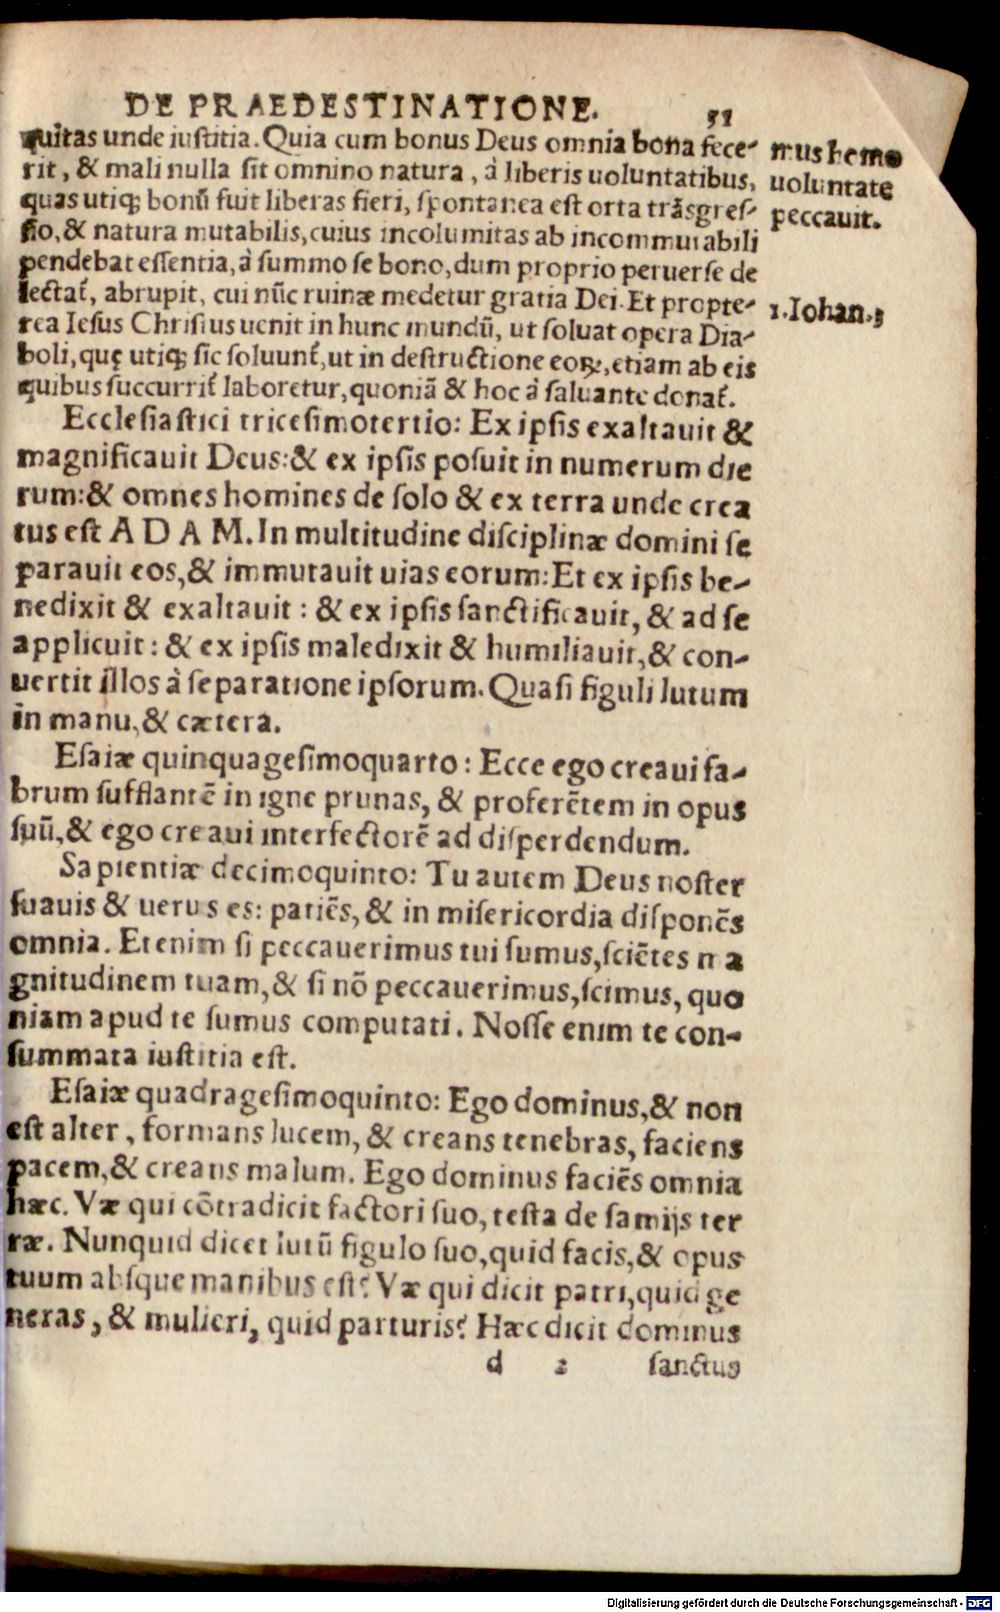 DE PRAEDESTINATIONE. 51
quitas unde iustitia. Quia cum bonus Deus omnia bona fece-
rit, & mali nulla sit omnino natura, à liberis uoluntatibus,
quas utiq; bonũ fuit liberas fieri, spontanea est orta trãsgres-
sio, & natura mutabilis, cuius incolumitas ab incommutabili
pendebat essentia, à summo se bono, dum proprio peruerse de
lectat᷑, abrupit, cui nũc ruinæ medetur gratia Dei. Et propte-
rea Iesus Christus uenit in hunc mundũ, ut soluat opera Dia-
boli, quę utiq; sic soluunt᷑, ut in destructione eoꝝ, etiam ab eis
quibus succurrit᷑ laboretur, quoniã & hoc à saluante donat᷑.
mus homo
uoluntate
peccauit.
1. Iohan. 3
Ecclesiastici tricesimotertio: Ex ipsis exaltauit &
magnificauit Deus: & ex ipsis posuit in numerum die
rum: & omnes homines de solo & ex terra unde crea
tus est ADAM. In multitudine disciplinæ domini se
parauit eos, & immutauit uias eorum: Et ex ipsis be-
nedixit & exaltauit: & ex ipsis sanctificauit, & ad se
applicuit: & ex ipsis maledixit & humiliauit, & con-
uertit illos à separatione ipsorum. Quasi figuli lutum
in manu, & cætera.
Esaiæ quinquagesimoquarto: Ecce ego creaui fa-
brum sufflantẽ in igne prunas, & proferẽtem in opus
suũ, & ego creaui interfectorẽ ad disperdendum.
Sapientiæ decimoquinto: Tu autem Deus noster
suauis & uerus es: patiẽs, & in misericordia disponẽs
omnia. Etenim si peccauerimus tui sumus, sciẽtes ma
gnitudinem tuam, & si nõ peccauerimus, scimus, quo
niam apud te sumus computati. Nosse enim te con-
summata iustitia est.
Esaiæ quadragesimoquinto: Ego dominus, & non
est alter, formans lucem, & creans tenebras, faciens
pacem, & creans malum. Ego dominus faciẽs omnia
hæc. Væ qui cõtradicit factori suo, testa de samijs ter
ræ. Nunquid dicet lutũ figulo suo, quid facis, & opus
tuum absque manibus est? Væ qui dicit patri, quid ge
neras, & mulieri, quid parturis? Hæc dicit dominus
d 2 sanctus
Digitalisierung gefördert durch die Deutsche Forschungsgemeinschaft - DFG